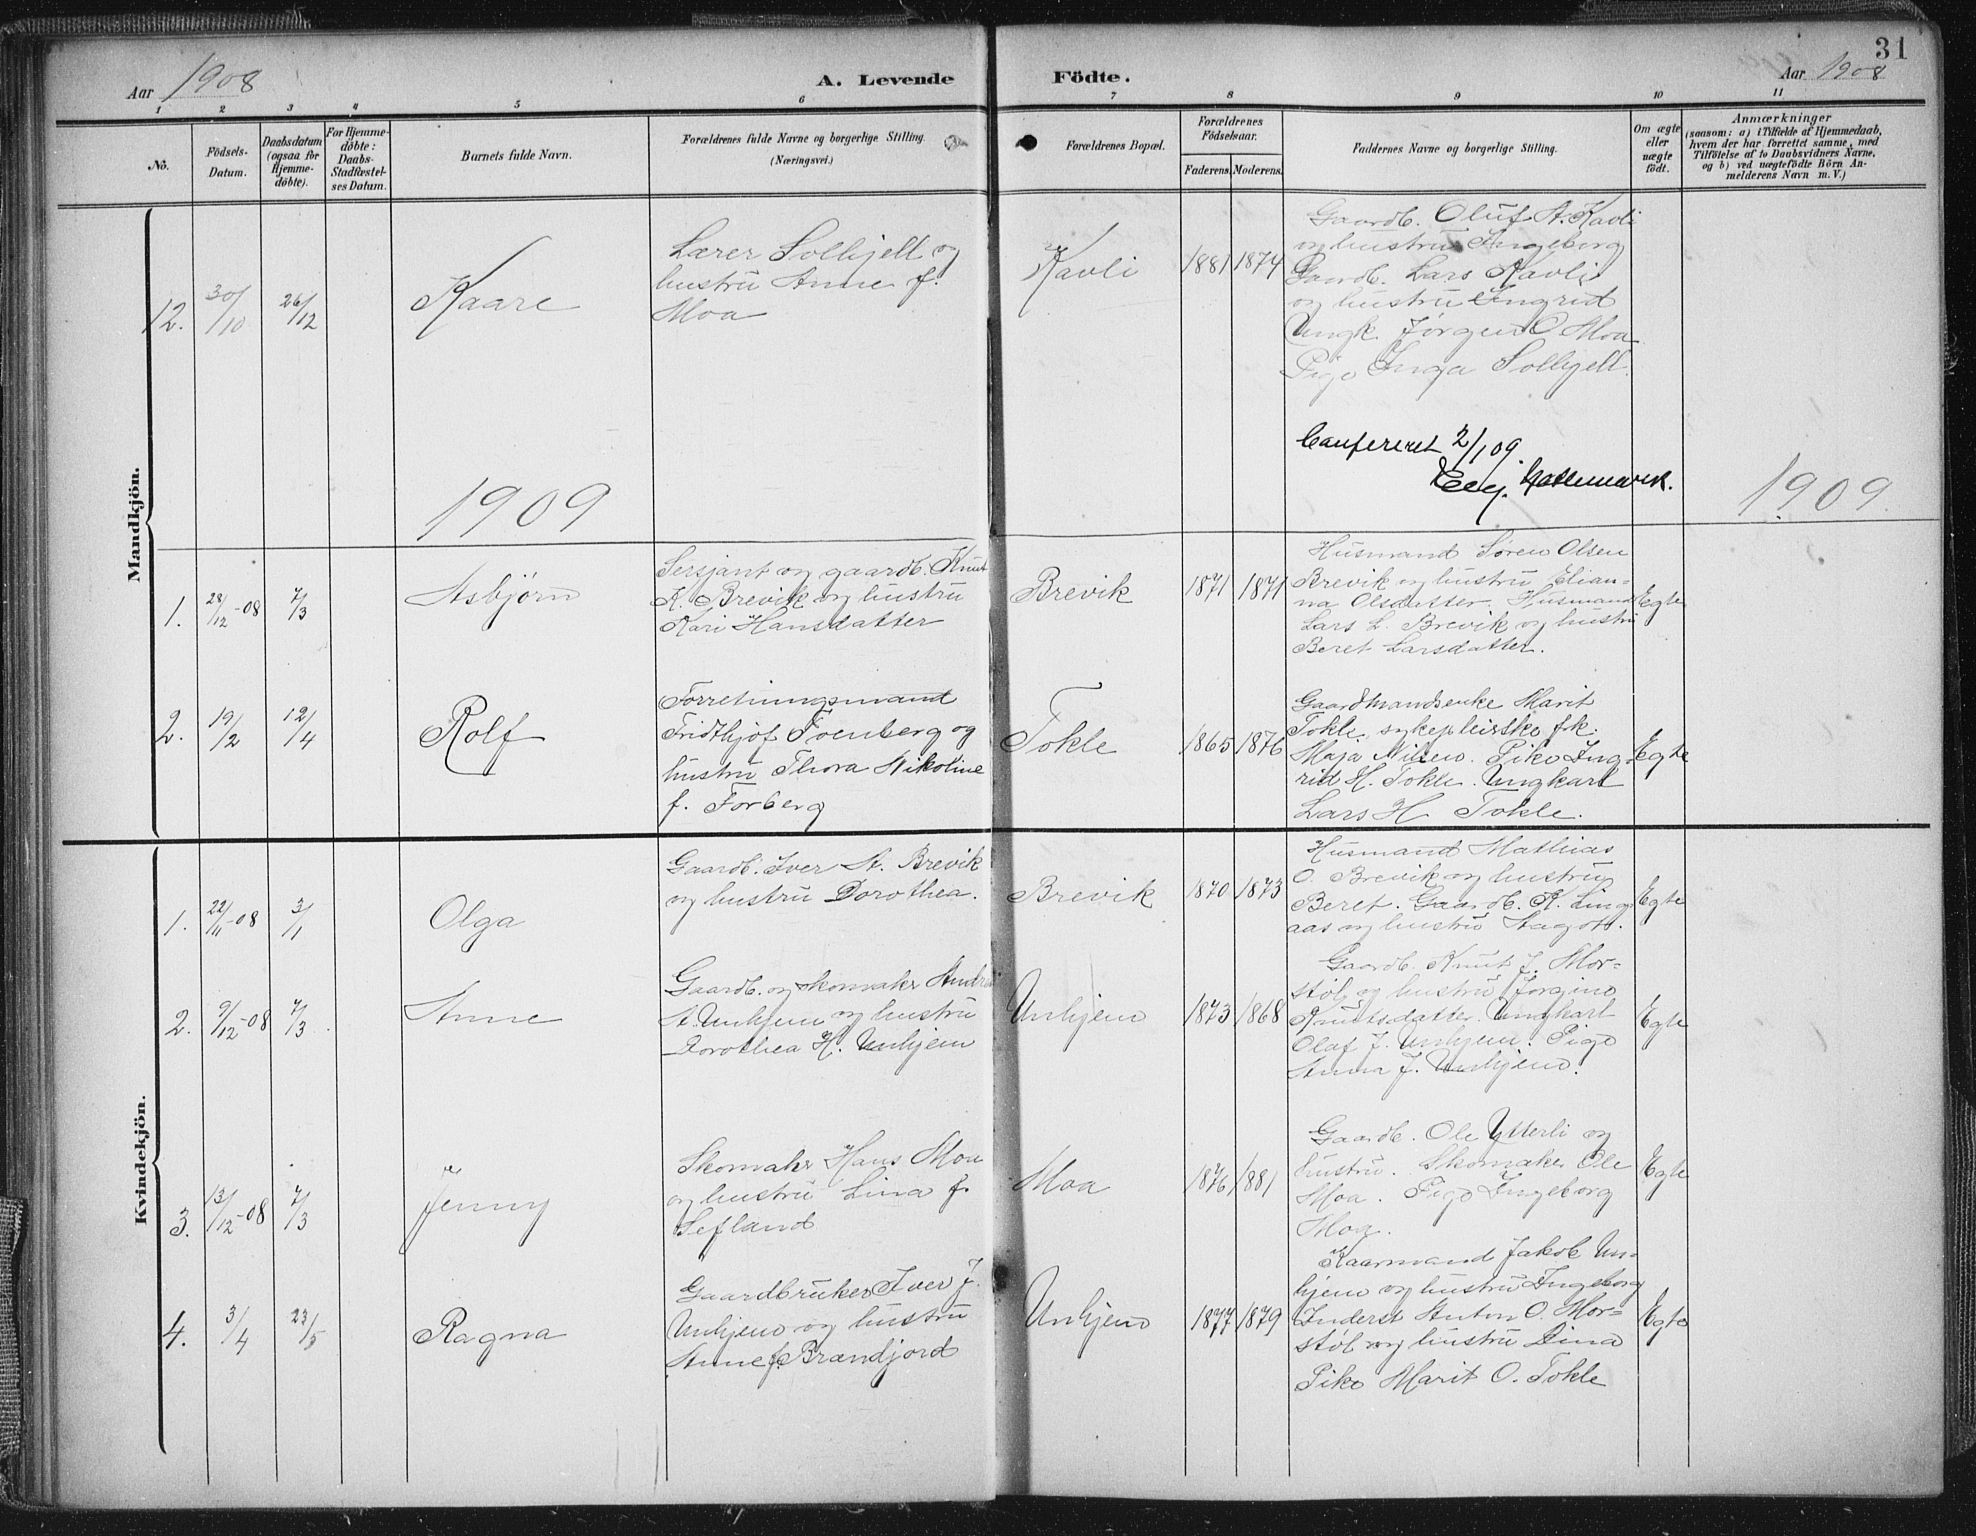 31
Aar 1908
A. Levende Födte.
Aar 1908
1 2 3 4 5 6 7 8 9 10 11
No.
Födsels-
Datum.
Daabsdatum
(ogsaa for
Hjemme-
döbte).
For Hjemme-
döbte:
Daabs-
Stadfæstel-
ses Datum.
Barnets fulde Navn.
Forældrenes fulde Navne og borgerlige Stilling.
(Næringsvei.)
Forældrenes Bopæl.
Forældrenes
Födselsaar.
Faderens. Moderens.
Faddernes Navne og borgerlige Stilling.
Om ægte
eller
uægte
födt.
Anmærkninger
(saasom: a) i Tilfælde af Hjemmedaab,
hvem der har forrettet samme, med
Tilföielse af to Daabsvidners Navne,
og b) ved uægtefödte Börn An-
melderens Navn m. V.)
Mandkjön.
12. 30/10 26/12 Kaare
Lærer Solhjell og
hustru Anne f.
Moa
Kavli 1881 1874
Gaardb. Oluf A. Kavli
og hustru Ingeborg
Gaardb. Lars Kavli
og hustru Ingrid
Ungk. Jørgen O Moa
Pige Inga Solhjell.
Confereret 2/1 09.
1909
1909.
1. 28/12-08 7/3 Asbjørn
Sersjant og gaardb. Knut
K. Brevik og hustru
Kari Hansdatter
Brevik 1871 1871
Husmand Søren Olsen
Brevik og hustru Elian-
na Olsdatter. Husmand
Lars L. Brevik og hustru
Beret Larsdatter.
Egte
2. 19/2 12/4 Rolf
Forretningsmand
Fridthjof Tvenberg og
hustru Thora Nikoline
f. Forberg
Tokle 1865 1876
Gaardmandsenke Marit
Tokle, sykepleirske frk.
Maja Nilsen. Pike Ing-
rid H. Tokle. Ungkarl
Lars H Tokle.
Egte
Kvindekjön.
1. 22/11-08 3/1 Olga
Gaardb. Iver A. Brevik
og hustru Dorothea.
Brevik 1870 1873
Husmand Mathias
O. Brevik og hustru
Beret. Gaardb. K. Ling-
aas og hustru
Egte
2. 9/12-08 7/3 Anne
Gaardb. og skomaker
A. Unhjem og hustru
Dorothea H. Unhjem
Unhjem 1873 1868
Gaardb. Knut J. Mor-
støl og hustru Jørgine
Knutsdatter. Ungkarl
Olaf J. Unhjem. Pige
Anna J. Unhjem.
Egte
3. 13/12-08 7/3 Jenny
Skomaker Hans Moa
og hustru Lina f.
Sefland
Moa 1876 1881
Gaardb. Ole Ytterli og
hustru. Skomaker Ole
Moa. Pige Ingeborg
Moa.
Egte
4. 3/4 23/5 Ragna
Gaardbruker Iver J.
Unhjem og hustru
Anne f. Brandjord
Unhjem 1877 1879
Kaarmand Jakob Un-
hjem og hustru Ingeborg
Inderst Anton O. Mor-
støl og hustru Dina
Pike Marit O. Tokle
Egte